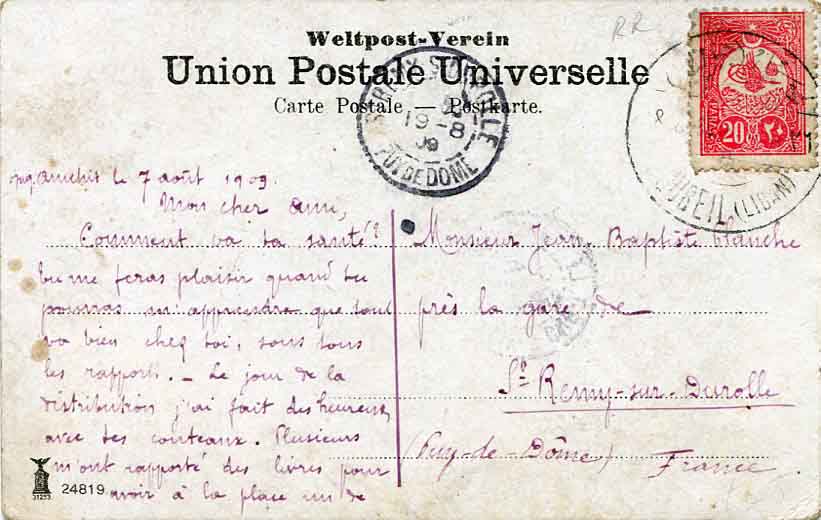 RR
Weltpost-Verein
Union Postale Universelle
Carte Postale — Postkarte.
PUY DE DOME
19-8
09
20
٢٠
DJBEIL (LIBAN)
le 7 août 1909.
Mon cher ami,
Comment va ta santé?
tu me feras plaisir quand tu
pourras m'apprendre que tout
va bien chez toi, sous tous
les rapports. — Le jour de la
distribution j'ai fait des heureux
avec tes couteaux. Plusieurs
m'ont rapporté des livres pour
avoir à la place un de
Monsieur Jean-Baptiste
près la gare de
St Remy-sur-Durolle
(Puy-de-Dôme) France
31293
24819